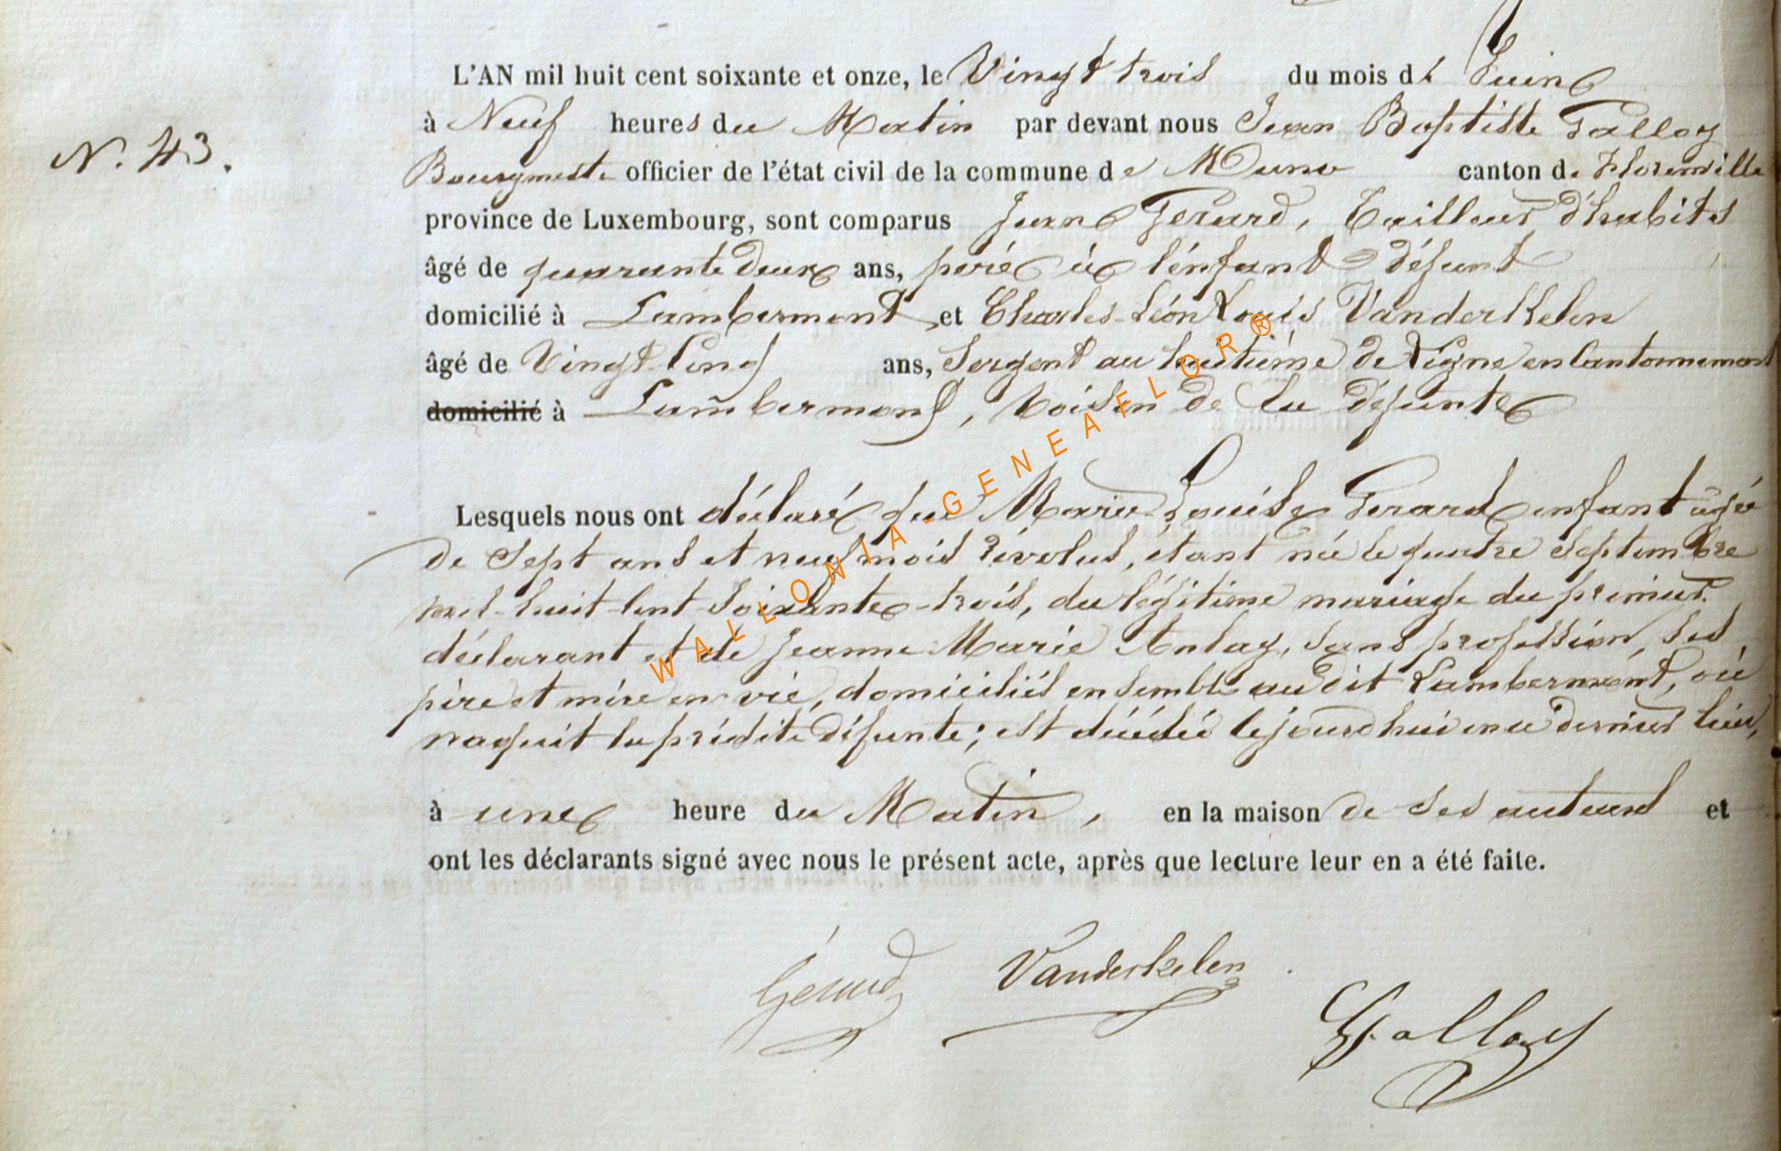 L'AN mil huit cent soixante et onze, le Vingt trois du mois de Juin
N. 43. à Neuf heures du Matin par devant nous Jean Baptiste Falloy
Bourgmestre officier de l'état civil de la commune de Muno canton de Florenville
province de Luxembourg, sont comparus Jean Gerard, Tailleur d'habits
âgé de quarante deux ans, père de l'enfant défunt
domicilié à Lambermont et Charles Léon Louis Vanderkelen
âgé de Vingt Cinq ans, Sergent au huitième de Ligne en Cantonnement
domicilié à Lambermont, voisin de la défunte
Lesquels nous ont déclaré que Marie Louise Gerard enfant âgé
de Sept ans et neuf mois révolus, étant née le quatre Septembre
mil-huit-cent Soixante-trois, du légitime mariage du premier
déclarant et de Jeanne Marie Anlay, sans profession, ses
père et mère en vie, domiciliés ensemble au dit Lambermont, où
naquit la prédite défunte; est décédée cejourd'hui en ce dernier lieu,
à une heure du Matin, en la maison de ses auteurs et
ont les déclarants signé avec nous le présent acte, après que lecture leur en a été faite.
Gérard Vanderkelen
Falloy
WALLONIA-GENEAFLOR®